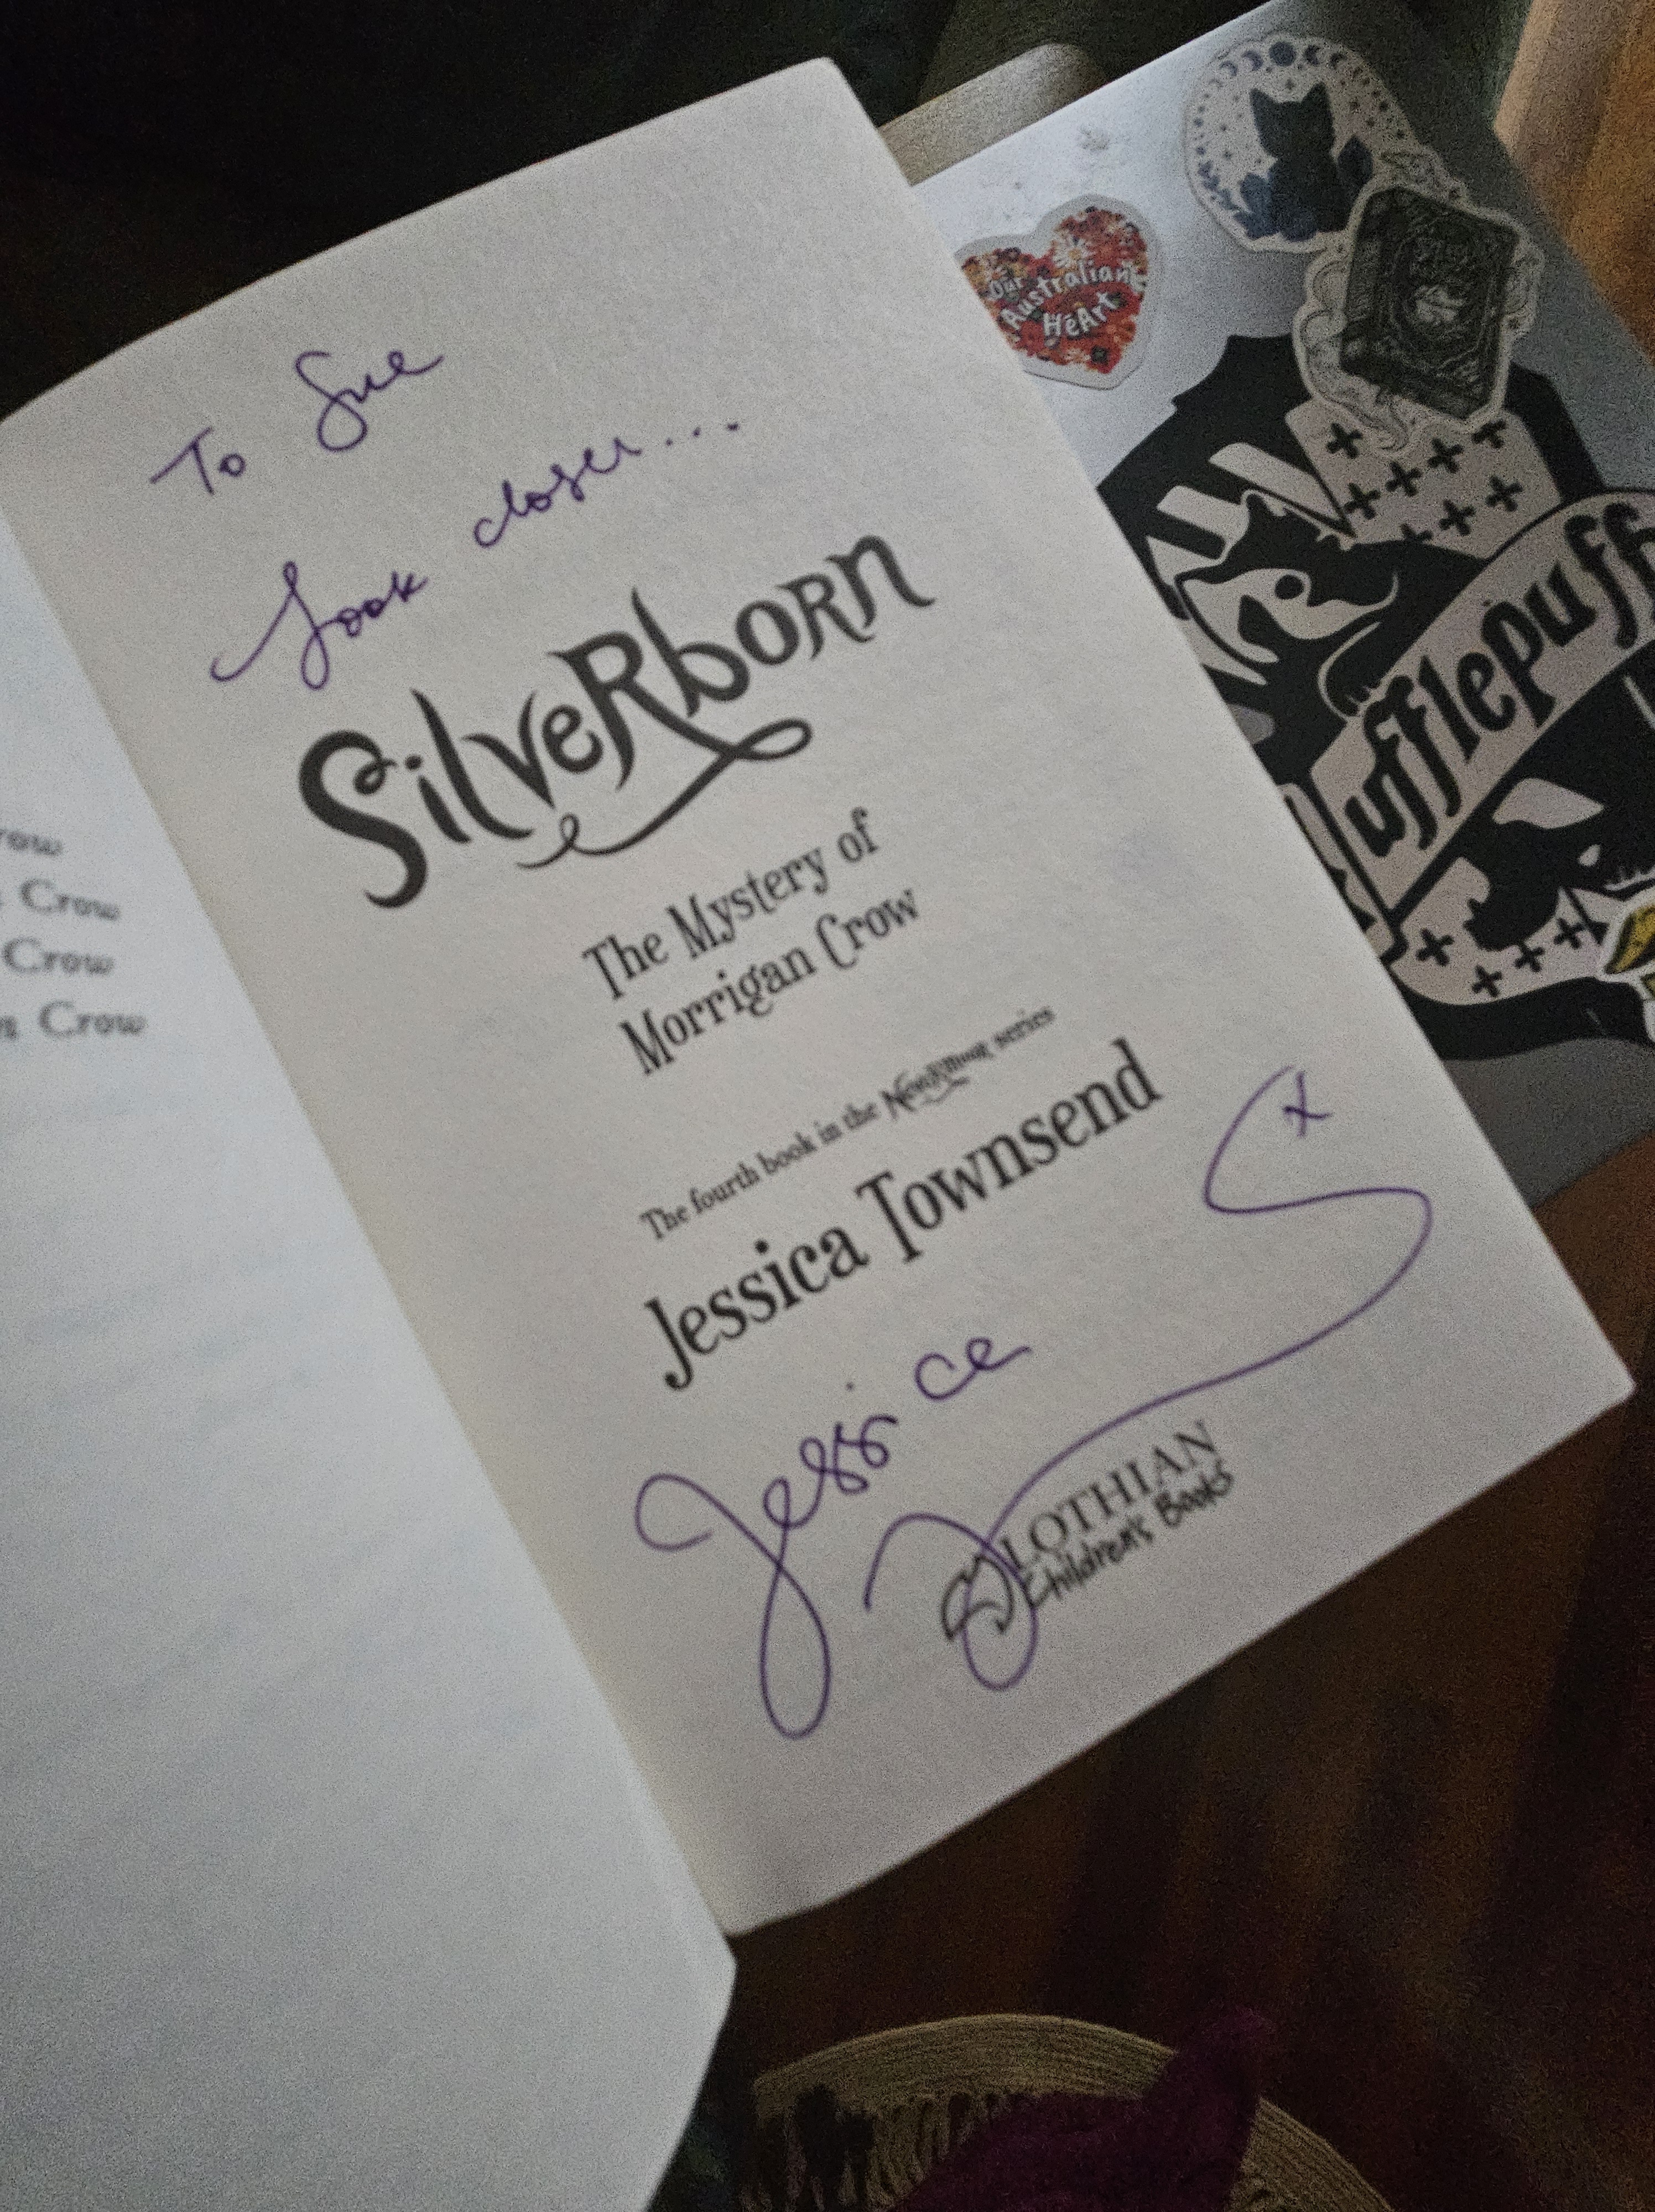 To Sue
Look closer...
Silverborn
The Mystery of
Morrigan Crow
The fourth book in the Nevermoor series
Jessica Townsend
Jessica
x
LOTHIAN
Children's Books
Crow
Crow
Crow
Our
Australian
HeArt
Hufflepuff